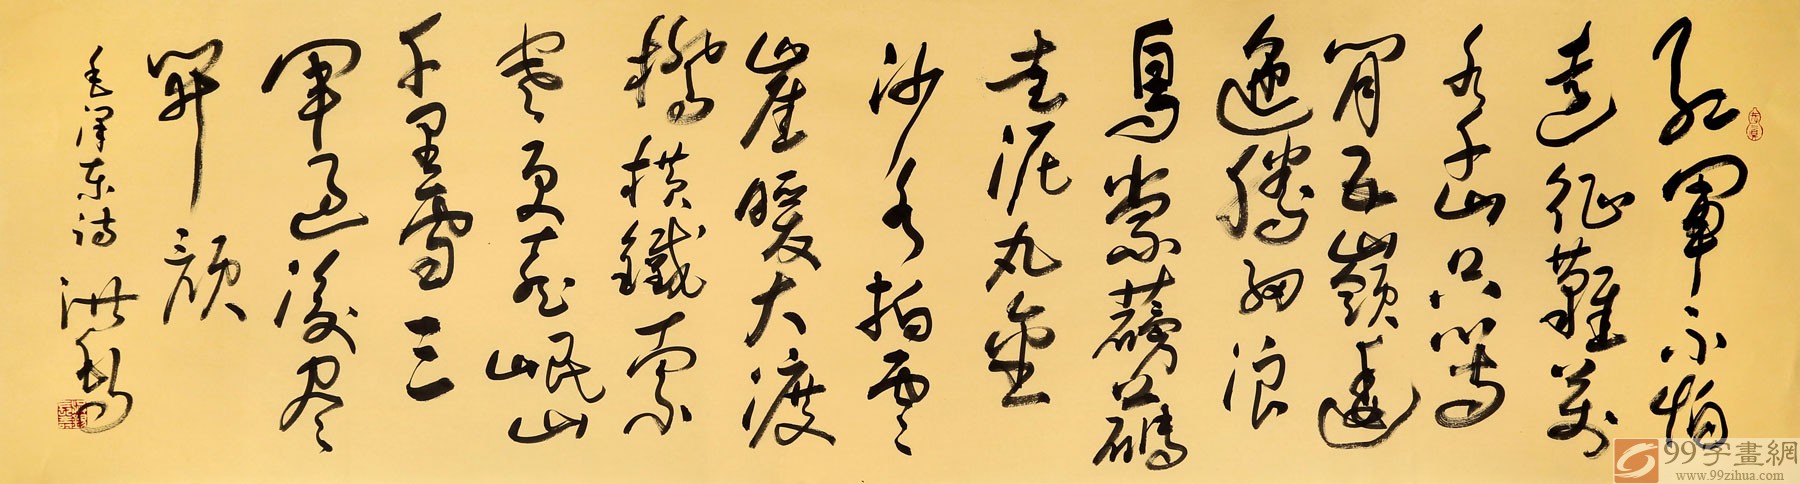 紅軍不怕
遠征難萬
水千山只等
閒五嶺逶
迤騰細浪
烏蒙磅礴
走泥丸金
沙水拍雲
崖暖大渡
橋橫鐵索
寒更喜岷山
千里雪三
軍過後尽
開顏
毛澤東詩 洪
99字畫網
www.99zihua.com